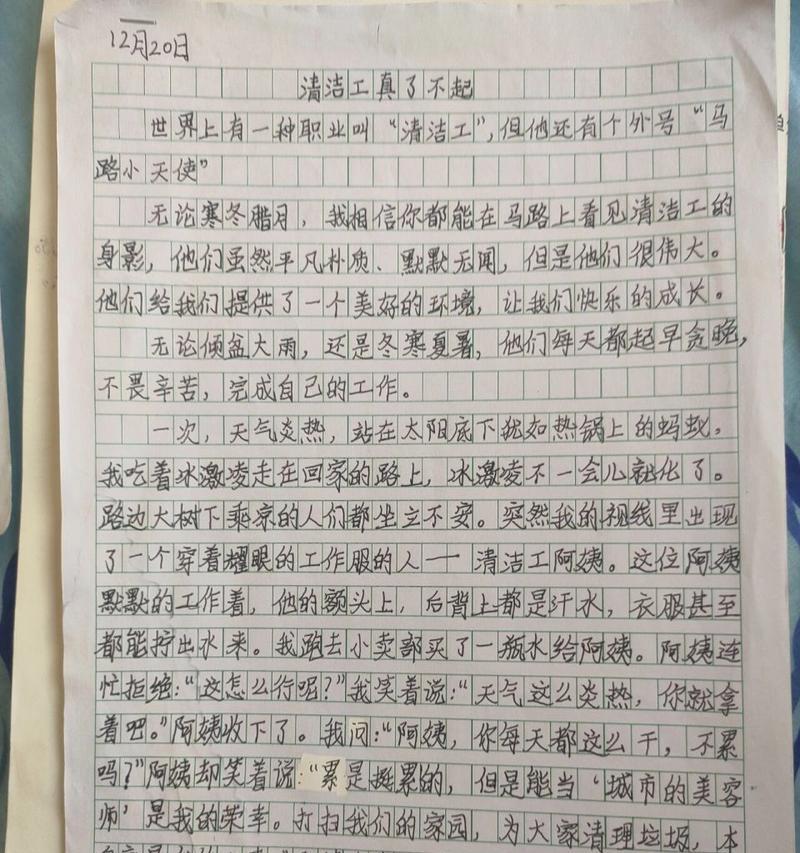 12月20日
清洁工真了不起
世界上有一种职业叫“清洁工”,但他还有个外号“马
路小天使”
无论寒冬腊月,我相信你都能在马路上看见清洁工的
身影,他们虽然平凡朴质、默默无闻,但是他们很伟大。
他们给我们提供了一个美好的环境,让我们快乐的成长。
无论倾盆大雨,还是冬寒夏暑,他们每天都起早贪晚,
不畏辛苦,完成自己的工作。
一次,天气炎热,站在太阳底下犹如热锅上的蚂蚁。
我吃着冰激凌走在回家的路上,冰激凌不一会儿就化了。
路边大树下乘凉的人们都坐立不安。突然我的视线里出现
了一个穿着耀眼的工作服的人——清洁工阿姨。这位阿姨
默默的工作着,他的额头上,后背上都是汗水,衣服甚至
都能拧出水来。我跑去小卖部买了一瓶水给阿姨。阿姨连
忙拒绝:“这怎么行呢?”我笑着说:“天气这么炎热,你就拿
着吧。”阿姨收下了。我问:“阿姨,你每天都这么干,不累
吗?”阿姨却笑着说:“累是挺累的,但是能当‘城市的美容
师’是我的荣幸。打扫我们的家园,为大家清理垃圾,本